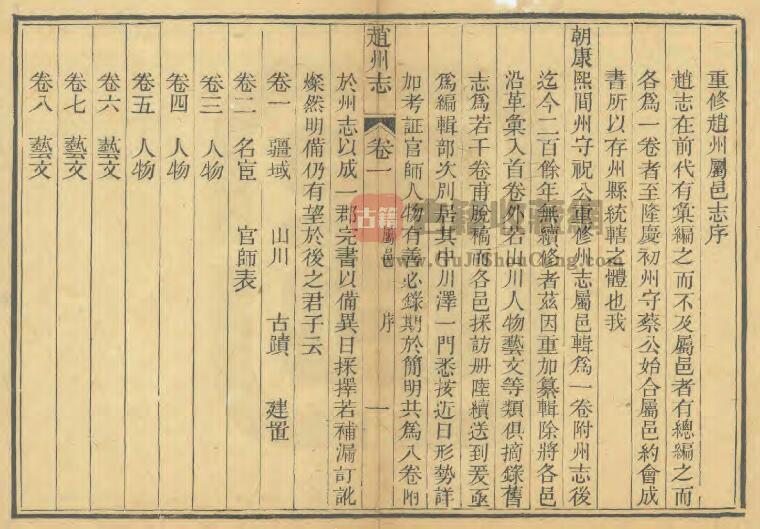 重修趙州屬邑志序
趙志在前代有彙編之而不及屬邑者有總編之而
各為一卷者至隆慶初州守蔡公始合屬邑約會成
書所以存州縣統轄之體也我
朝康熙間州守祝公重修州志屬邑輯為一卷附州志後
迄今二百餘年無續修者茲因重加纂輯除將各邑
沿革彙入首卷外若山川人物藝文等類俱摘錄舊
志為若干卷甫脫稿而各邑採訪冊陸續送到爰亟
為編輯部次別居其中川澤一門悉按近日形勢詳
加考証官師人物有善必錄期於簡明共為八卷附
趙州志 卷一 屬邑 序 一
於州志以成一郡完書以備異日採擇若補漏訂訛
燦然明備仍有望於後之君子云
卷一 疆域 山川 古蹟 建置
卷二 名宦 官師表
卷三 人物
卷四 人物
卷五 人物
卷六 藝文
卷七 藝文
卷八 藝文
古籍
古籍收藏網
www.GuJiShouCang.com